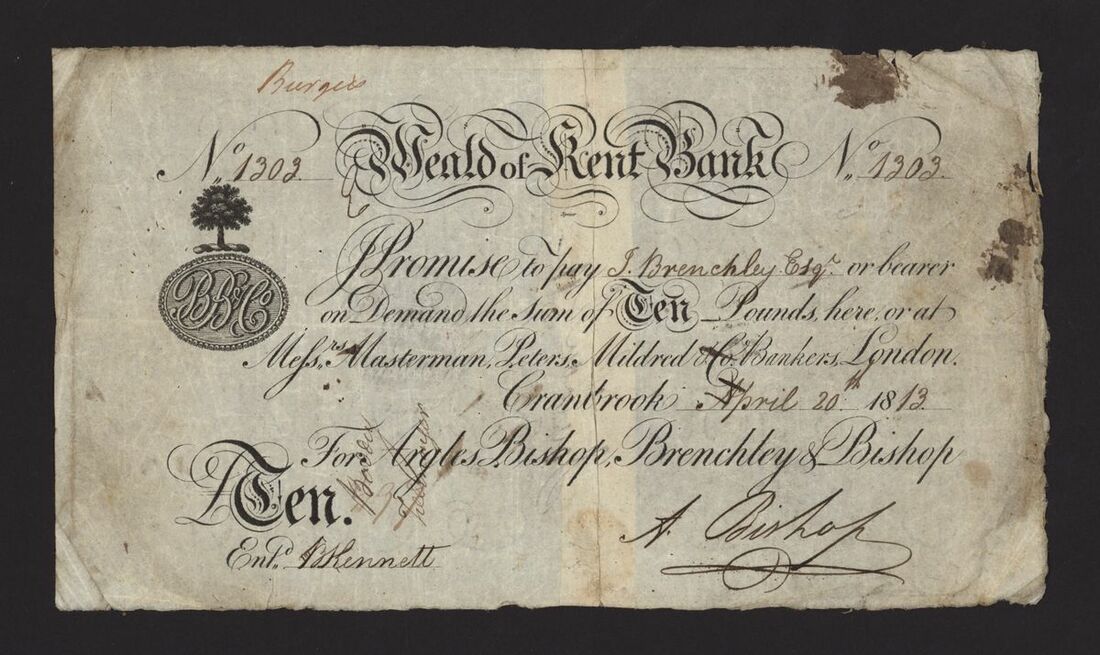 Burges
No. 1303. Weald of Kent Bank No. 1303.
BB&Co
I Promise to pay J. Brenchley Esqr. or bearer
on Demand the Sum of Ten Pounds, here, or at
Messrs. Masterman, Peters, Mildred & Co. Bankers, London.
Cranbrook April 20th 1813.
For Argles, Bishop, Brenchley & Bishop
£Ten.
A. Bishop
Entd. BKennett